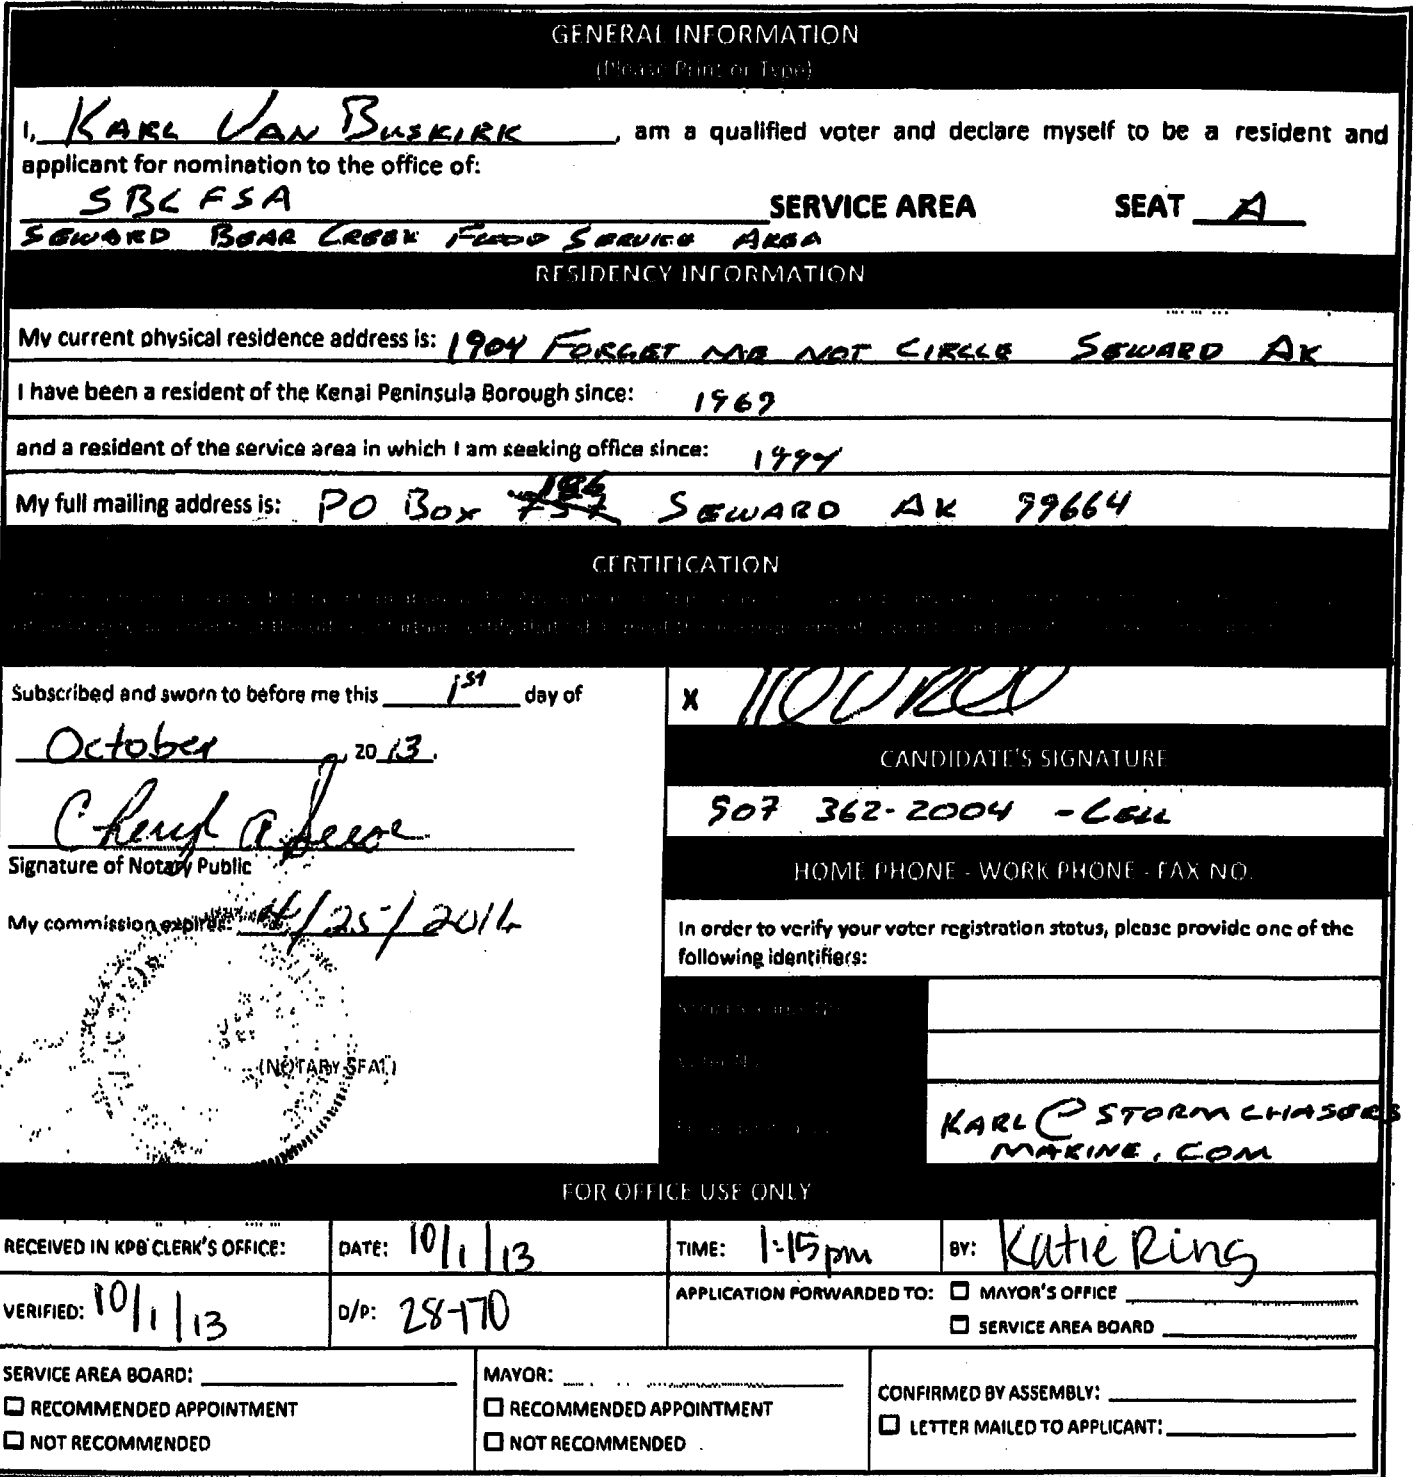 GENERAL INFORMATION
(Please Print or Type)
I, KARL VAN BUSKIRK, am a qualified voter and declare myself to be a resident and
applicant for nomination to the office of:
SBCFSA SERVICE AREA SEAT A
SEWARD BEAR CREEK FLOOD SERVICE AREA
RESIDENCY INFORMATION
My current physical residence address is: 1904 FORGET ME NOT CIRCLE SEWARD AK
I have been a resident of the Kenai Peninsula Borough since: 1969
and a resident of the service area in which I am seeking office since: 1994
My full mailing address is: PO Box SEWARD AK 99664
CERTIFICATION
Subscribed and sworn to before me this 1st day of
October, 2013.
Cheryl A
Signature of Notary Public
My commission expires: 4/25/2014
(NOTARY SEAL)
X
CANDIDATE'S SIGNATURE
907 362-2004 - CELL
HOME PHONE - WORK PHONE - FAX NO.
In order to verify your voter registration status, please provide one of the
following identifiers:
KARL@STORMCHASERS
MARINE.COM
FOR OFFICE USE ONLY
RECEIVED IN KPB CLERK'S OFFICE: DATE: 10/1/13 TIME: 1:15pm BY: Katie Ring
VERIFIED: 10/1/13 D/P: 28-170 APPLICATION FORWARDED TO: ☐ MAYOR'S OFFICE
☐ SERVICE AREA BOARD
SERVICE AREA BOARD:
☐ RECOMMENDED APPOINTMENT
☐ NOT RECOMMENDED
MAYOR:
☐ RECOMMENDED APPOINTMENT
☐ NOT RECOMMENDED
CONFIRMED BY ASSEMBLY:
☐ LETTER MAILED TO APPLICANT: